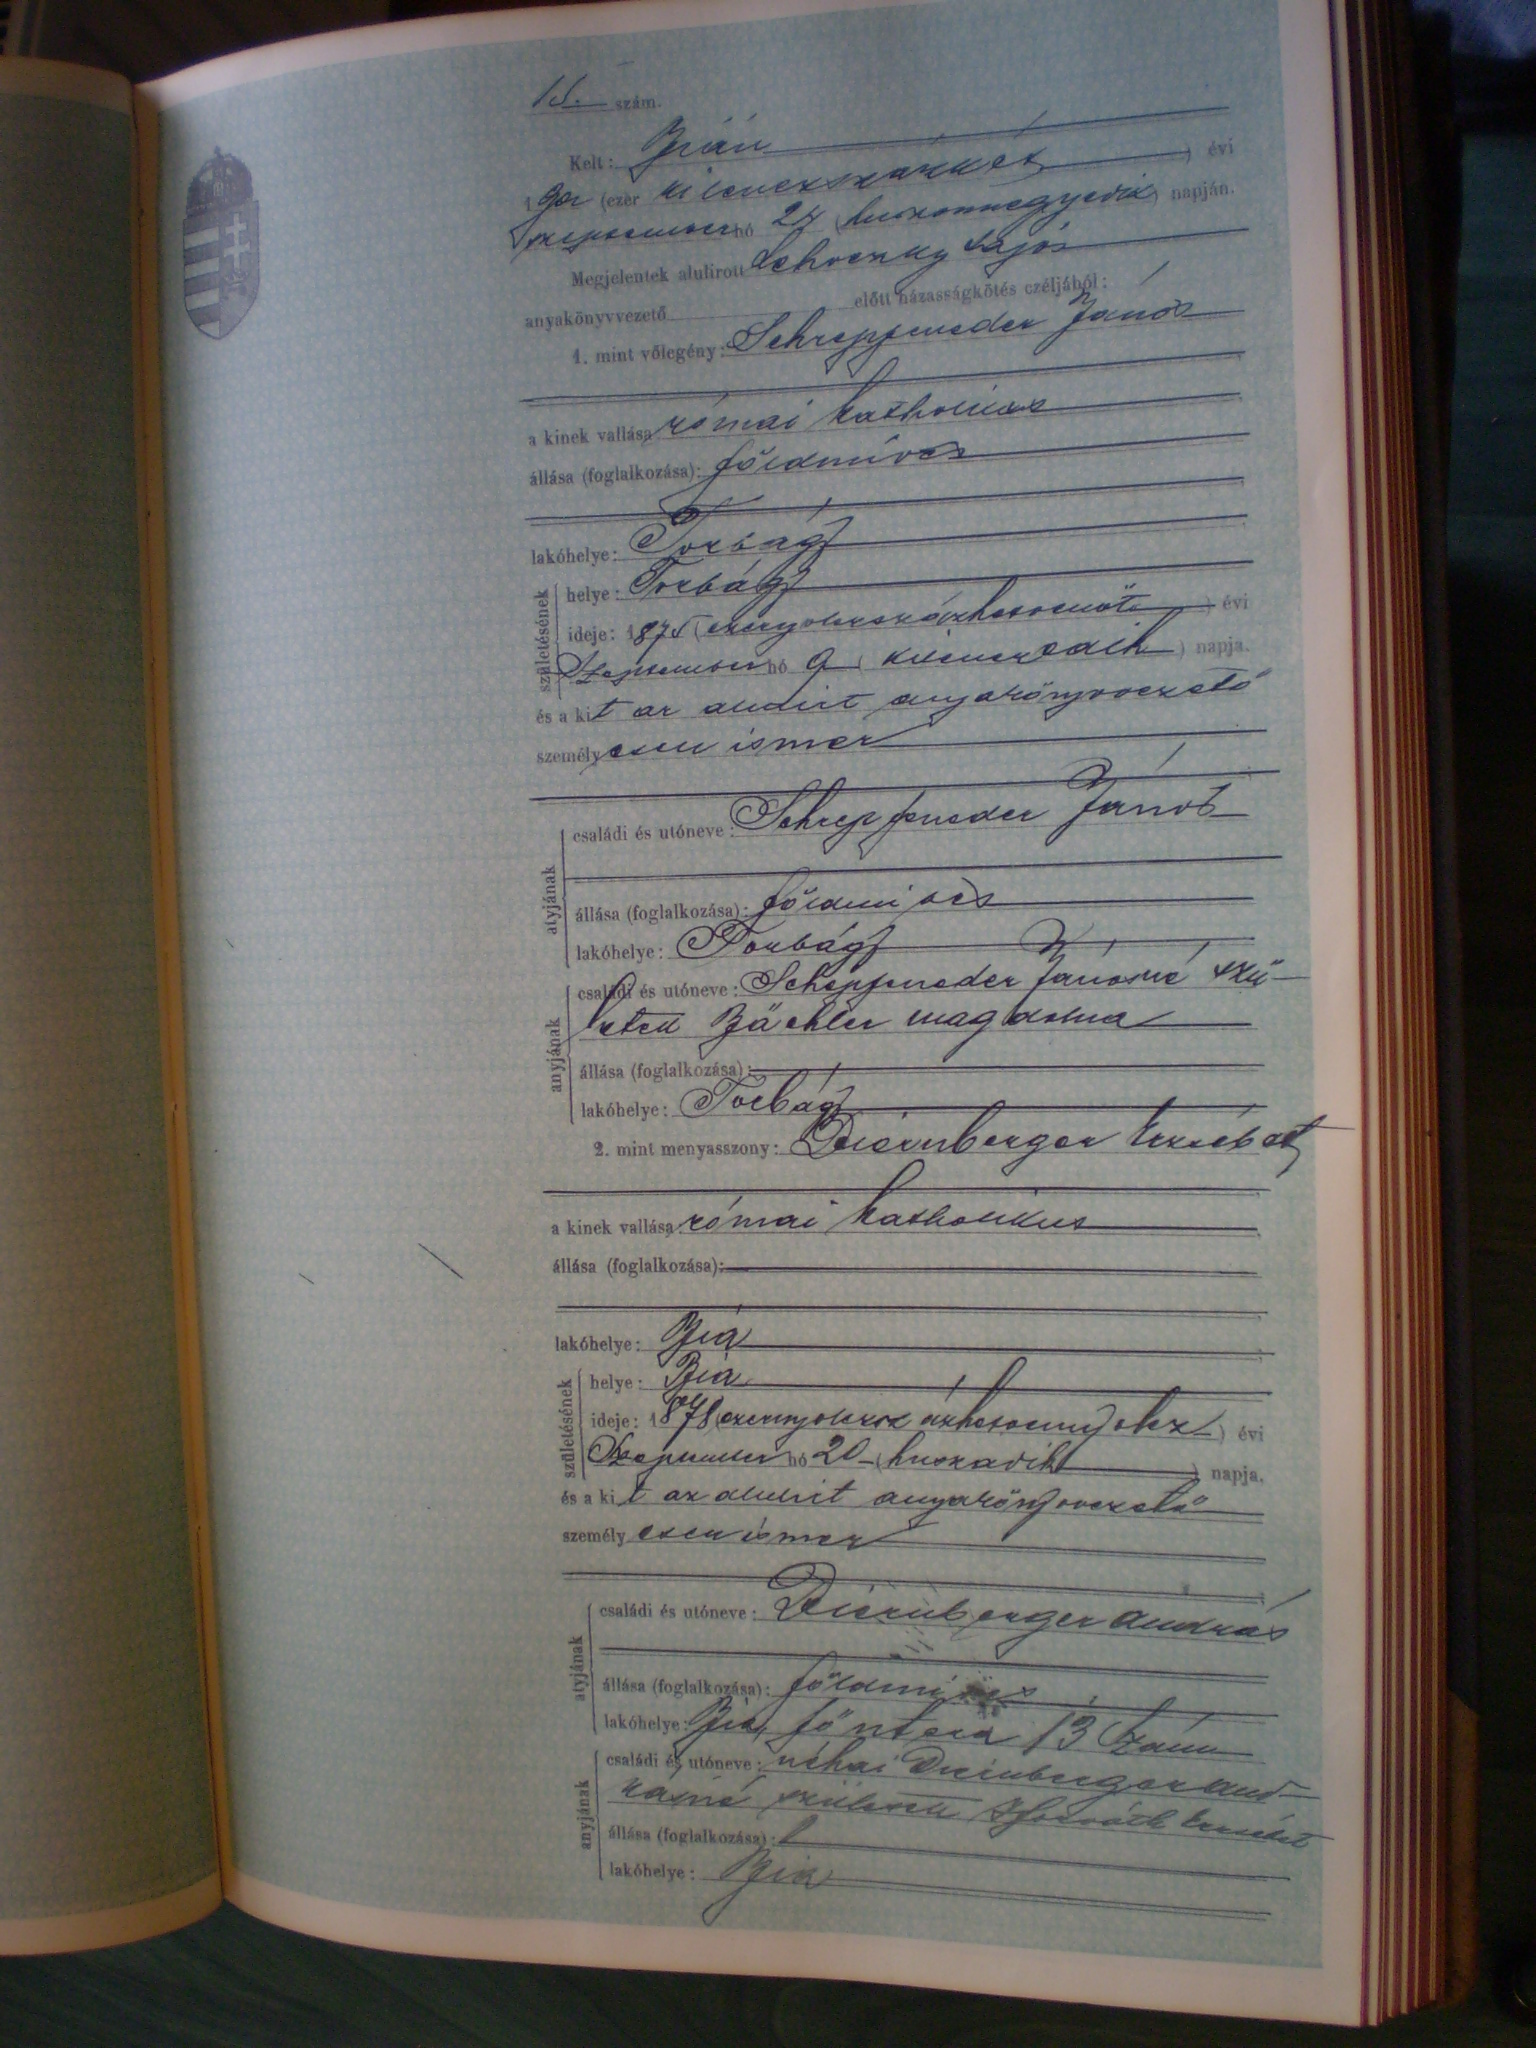 15. szám.
Kelt: Bián
1902 (ezer kilenczszázkét) évi
szeptember hó 24 (huszonnegyedik) napján.
Megjelentek alulirott Lehoczky Lajos
anyakönyvvezető előtt házasságkötés czéljából:
1. mint vőlegény: Schrepfeneder János
a kinek vallása római katholikus
állása (foglalkozása): földmíves
lakóhelye: Torbágy
születésének helye: Torbágy
ideje: 1875 (ezernyolczszázhetvenöt) évi
Szeptember hó 9 (kilenczedik) napja.
és a kit az alulirt anyakönyvvezető
személyesen ismer
atyjának családi és utóneve: Schrepfeneder János
állása (foglalkozása): földmives
lakóhelye: Torbágy
anyjának családi és utóneve: Schepfeneder Jánosné szü-
letett Bächler Magdolna
állása (foglalkozása):
lakóhelye: Torbágy
2. mint menyasszony: Deiernberger Erzsébet
a kinek vallása: római katholikus
állása (foglalkozása):
lakóhelye: Bia
születésének helye: Bia
ideje: 1878 (ezernyolczszázhetvennyolcz) évi
Szeptember hó 20 (huszadik) napja.
és a kit az alulirt anyakönyvvezető
személyesen ismer
atyjának családi és utóneve: Deiernberger András
állása (foglalkozása): földmives
lakóhelye: Bia, 13 szám
anyjának családi és utóneve: néhai Deiernberger And-
rásné született Horváth Erzsébet
állása (foglalkozása):
lakóhelye: Bia